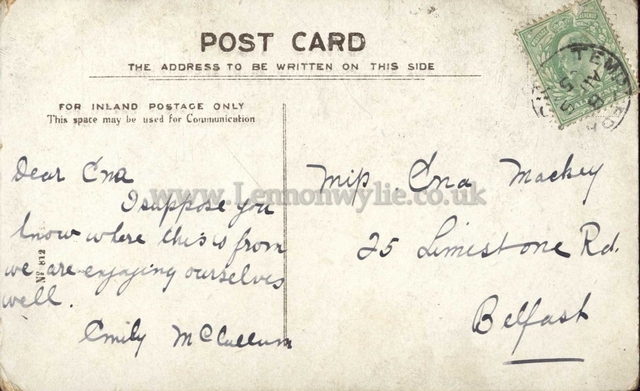 POST CARD
THE ADDRESS TO BE WRITTEN ON THIS SIDE
FOR INLAND POSTAGE ONLY
This space may be used for Communication
Dear Ena
I suppose you
know where this is from
we are enjoying ourselves
well.
Emily McCullum
Miss Ena Mackey
25 Limestone Rd.
Belfast
No 812
www.Lennonwylie.co.uk